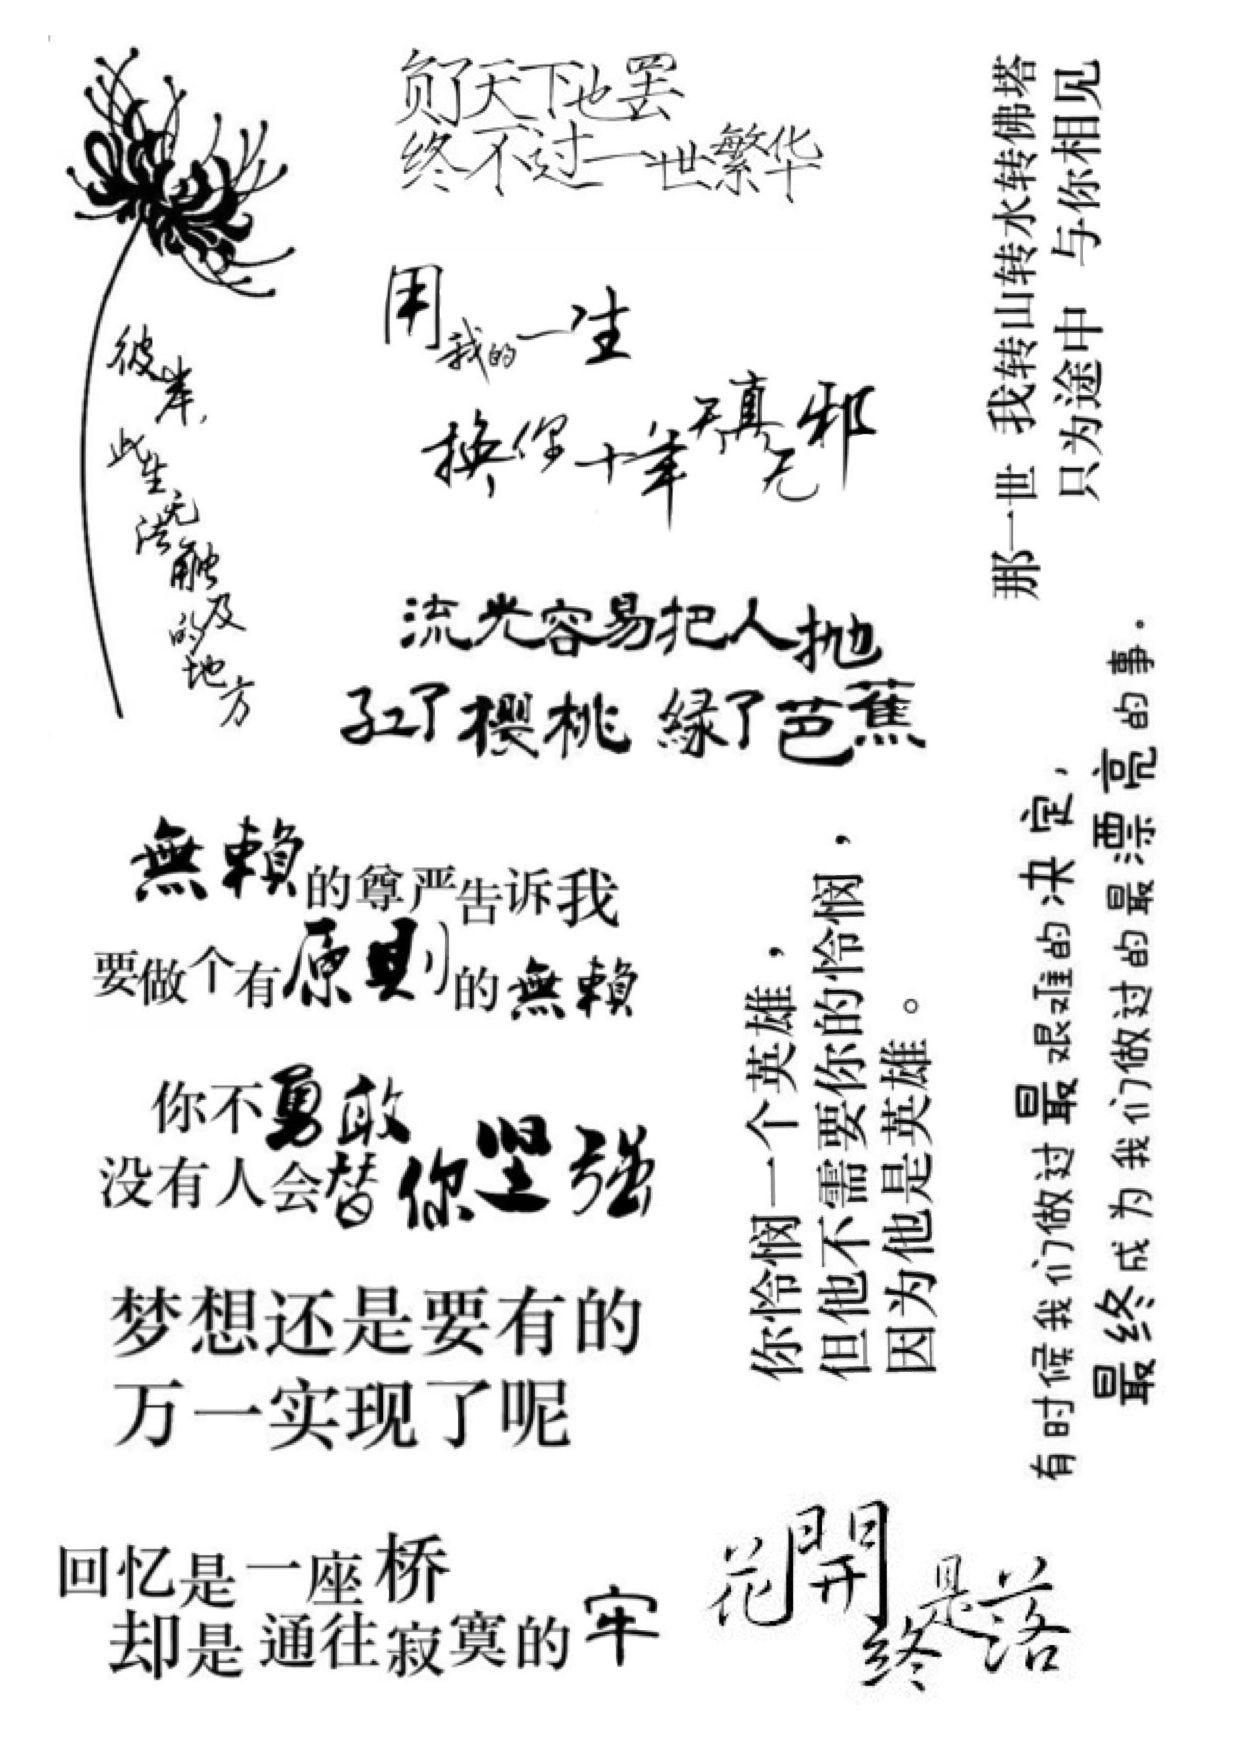 负了天下也罢
终不过一世繁华
彼岸,
此生无法触及的地方
用我的一生
换你十年天真无邪
流光容易把人抛
红了樱桃 绿了芭蕉
那一世 我转山转水转佛塔
只为途中 与你相见
無賴的尊严告诉我
要做个有原則的無賴
你不勇敢
没有人会替你坚强
梦想还是要有的
万一实现了呢
你怜悯一个英雄，
但他不需要你的怜悯，
因为他是英雄。
有时候我们做过最艰难的决定，
最终成为我们做过的最漂亮的事。
回忆是一座桥
却是通往寂寞的牢
花開終是落